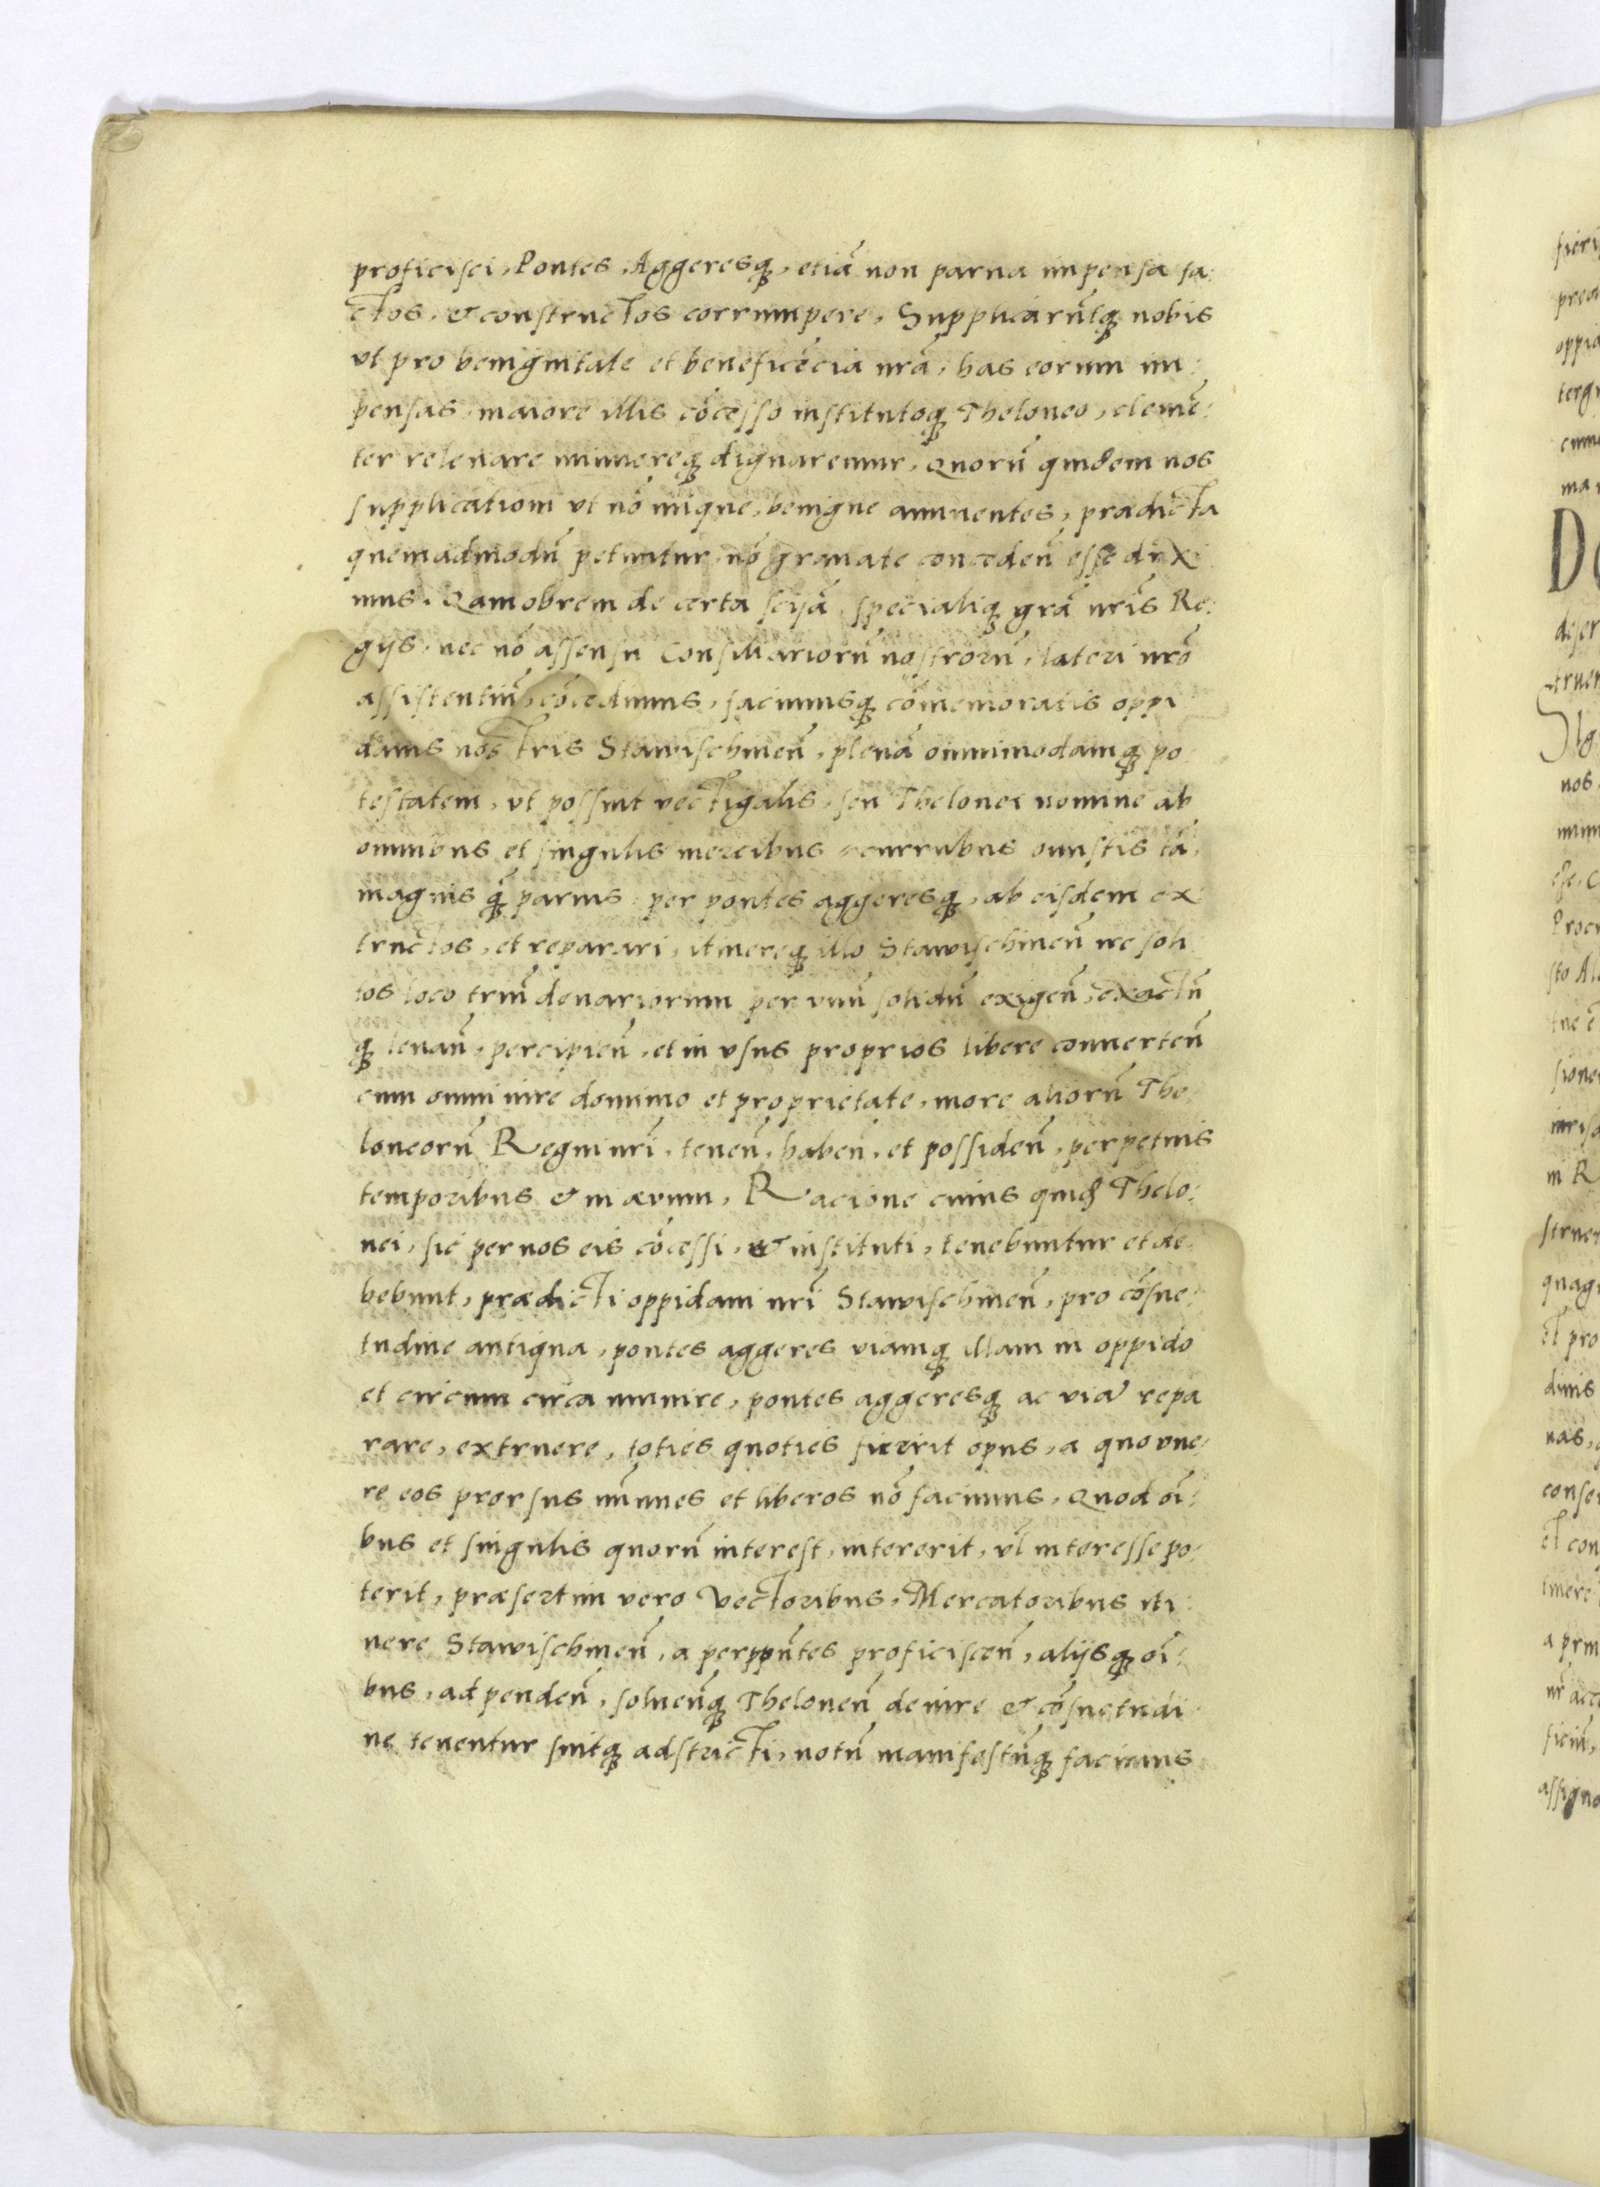 proficisci, Pontes, Aggeresq́, etiā non parua impensa fa:
ctos, & constructos corrumpere, Supplicarūtq́ nobis
vt pro benignitate et beneficēcia nrā, has eorum im:
pensas, maiore illis cōcesso institutoq́ Theloneo, clemē:
ter releuare minuereq́ dignaremur, Quorū quidem nos
supplicationi vt nō iniquę, benigne annuentes, prædicta
quemadmodū petuntur, nō grauate concedeñ esse dux:
imus, Qamobrem de certa sciā, specialiq́ grā nrīs Re:
gijs, nec nō assensu Consiliariorū nostrorū, lateri nrō
assistentiū, cōcedimus, facimusq́ cōmemoratis oppi
danis nostris Stawischineñ, plenā omnimodamq́ po
testatem, vt possint vectigalis, seu Thelonei nomine ab
omnibus et singulis mercibus & curribus onustis tā,
magnis q̄ȝ paruis, per pontes aggeresq́, ab eisdem ex
tructos, et reparari, itinereq́ illo Stawischineñ ire soli
tos loco triū denariorum per vnū solidū exigeñ, exactū
q́ leuañ, percipieñ, et in vsus proprios libere conuerteñ
cum omni iure dominio et proprietate, more aliorū The
loneorū Regni nrī, teneñ, habeñ, et possideñ, perpetuis
temporibus & in ævum, Racione cuius quid Thelo:
nei, sic per nos eis cōcessi, & instituti, tenebuntur et de
bebunt, prædicti oppidani nrī Stawischineñ, pro cōsue:
tudine antiqua, pontes aggeres viamq́ illam in oppido
et circum circa munire, pontes aggeresq́ ac viā repa
rare, extruere, toties quoties fuerit opus, a quo vne:
re eos prorsus imūnes et liberos nō facimus, Quod oī:
bus et singulis quorū interest, intererit, vl̄ interesse po:
terit, præsertim vero Vectoribus, Mercatoribus iti:
nere Stawischineñ, a perppntes proficisceñ, alijsq́ oī:
bus, ad pendeñ, soluenq́ Theloneū de iure & cōsuetudi
ne tenentur sintq́ adstricti, notū manifestūq́ facimus